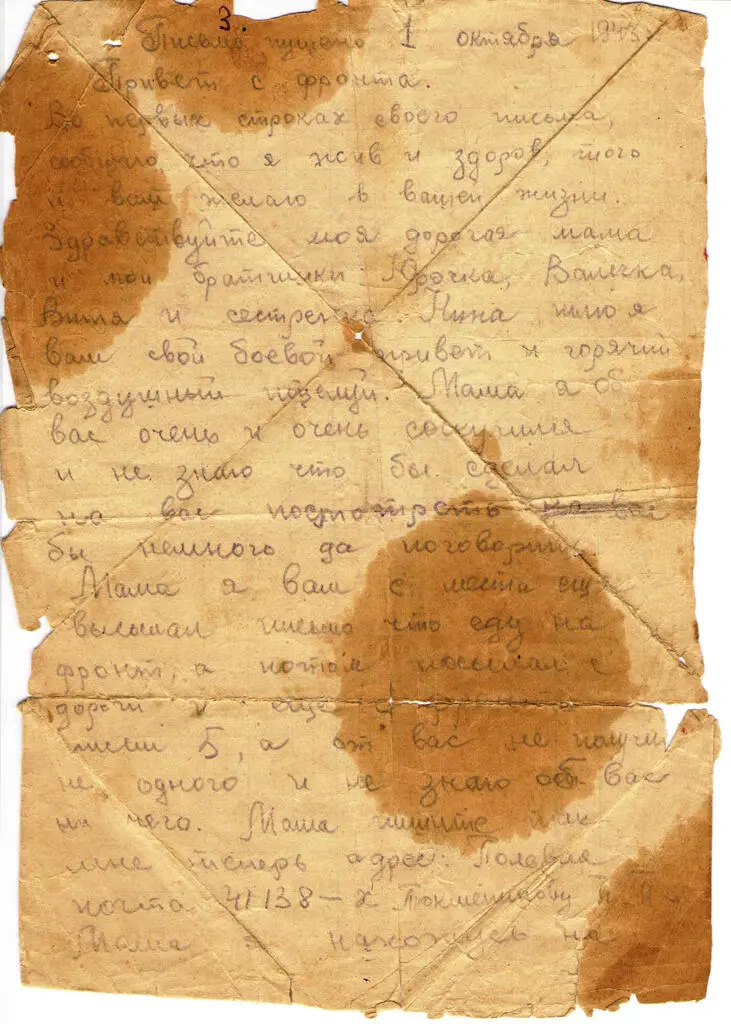 3.
Письмо пущено 1 октября 1943
Привет с фронта.
Во первых строках своего письма,
сообщаю что я жив и здоров, того
и вам желаю в вашей жизни.
Здравствуйте моя дорогая мама
и мои братишки Юрочка, Валичка,
Витя и сестренка Нина шлю я
вам свой боевой привет и горячий
воздушный поцелуй. Мама я об
вас очень и очень соскучился
и не знаю что бы сделал
на вас посмотреть на вас
бы немного да поговорить.
Мама я вам с места еще
высылал письмо что еду на
фронт, а потом посылал с
дороги и еще с
писем 5, а от вас не получил
не одного и не знаю об вас
ни чего. Мама пишите так
мне теперь адрес: Полевая
почта 41138-х
Мама я нахожусь на